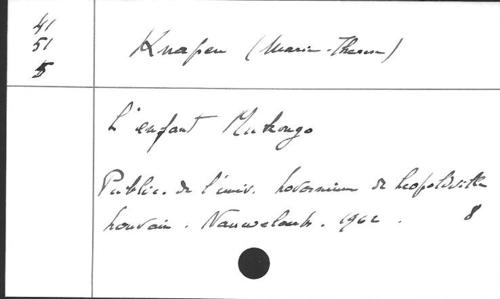 41
51
5
Knapen (Marie-Therese)
L'enfant Mukongo
Public. de l'univ. Lovanium de Léopoldville
Louvain. Nauwelaerts. 1962. 8